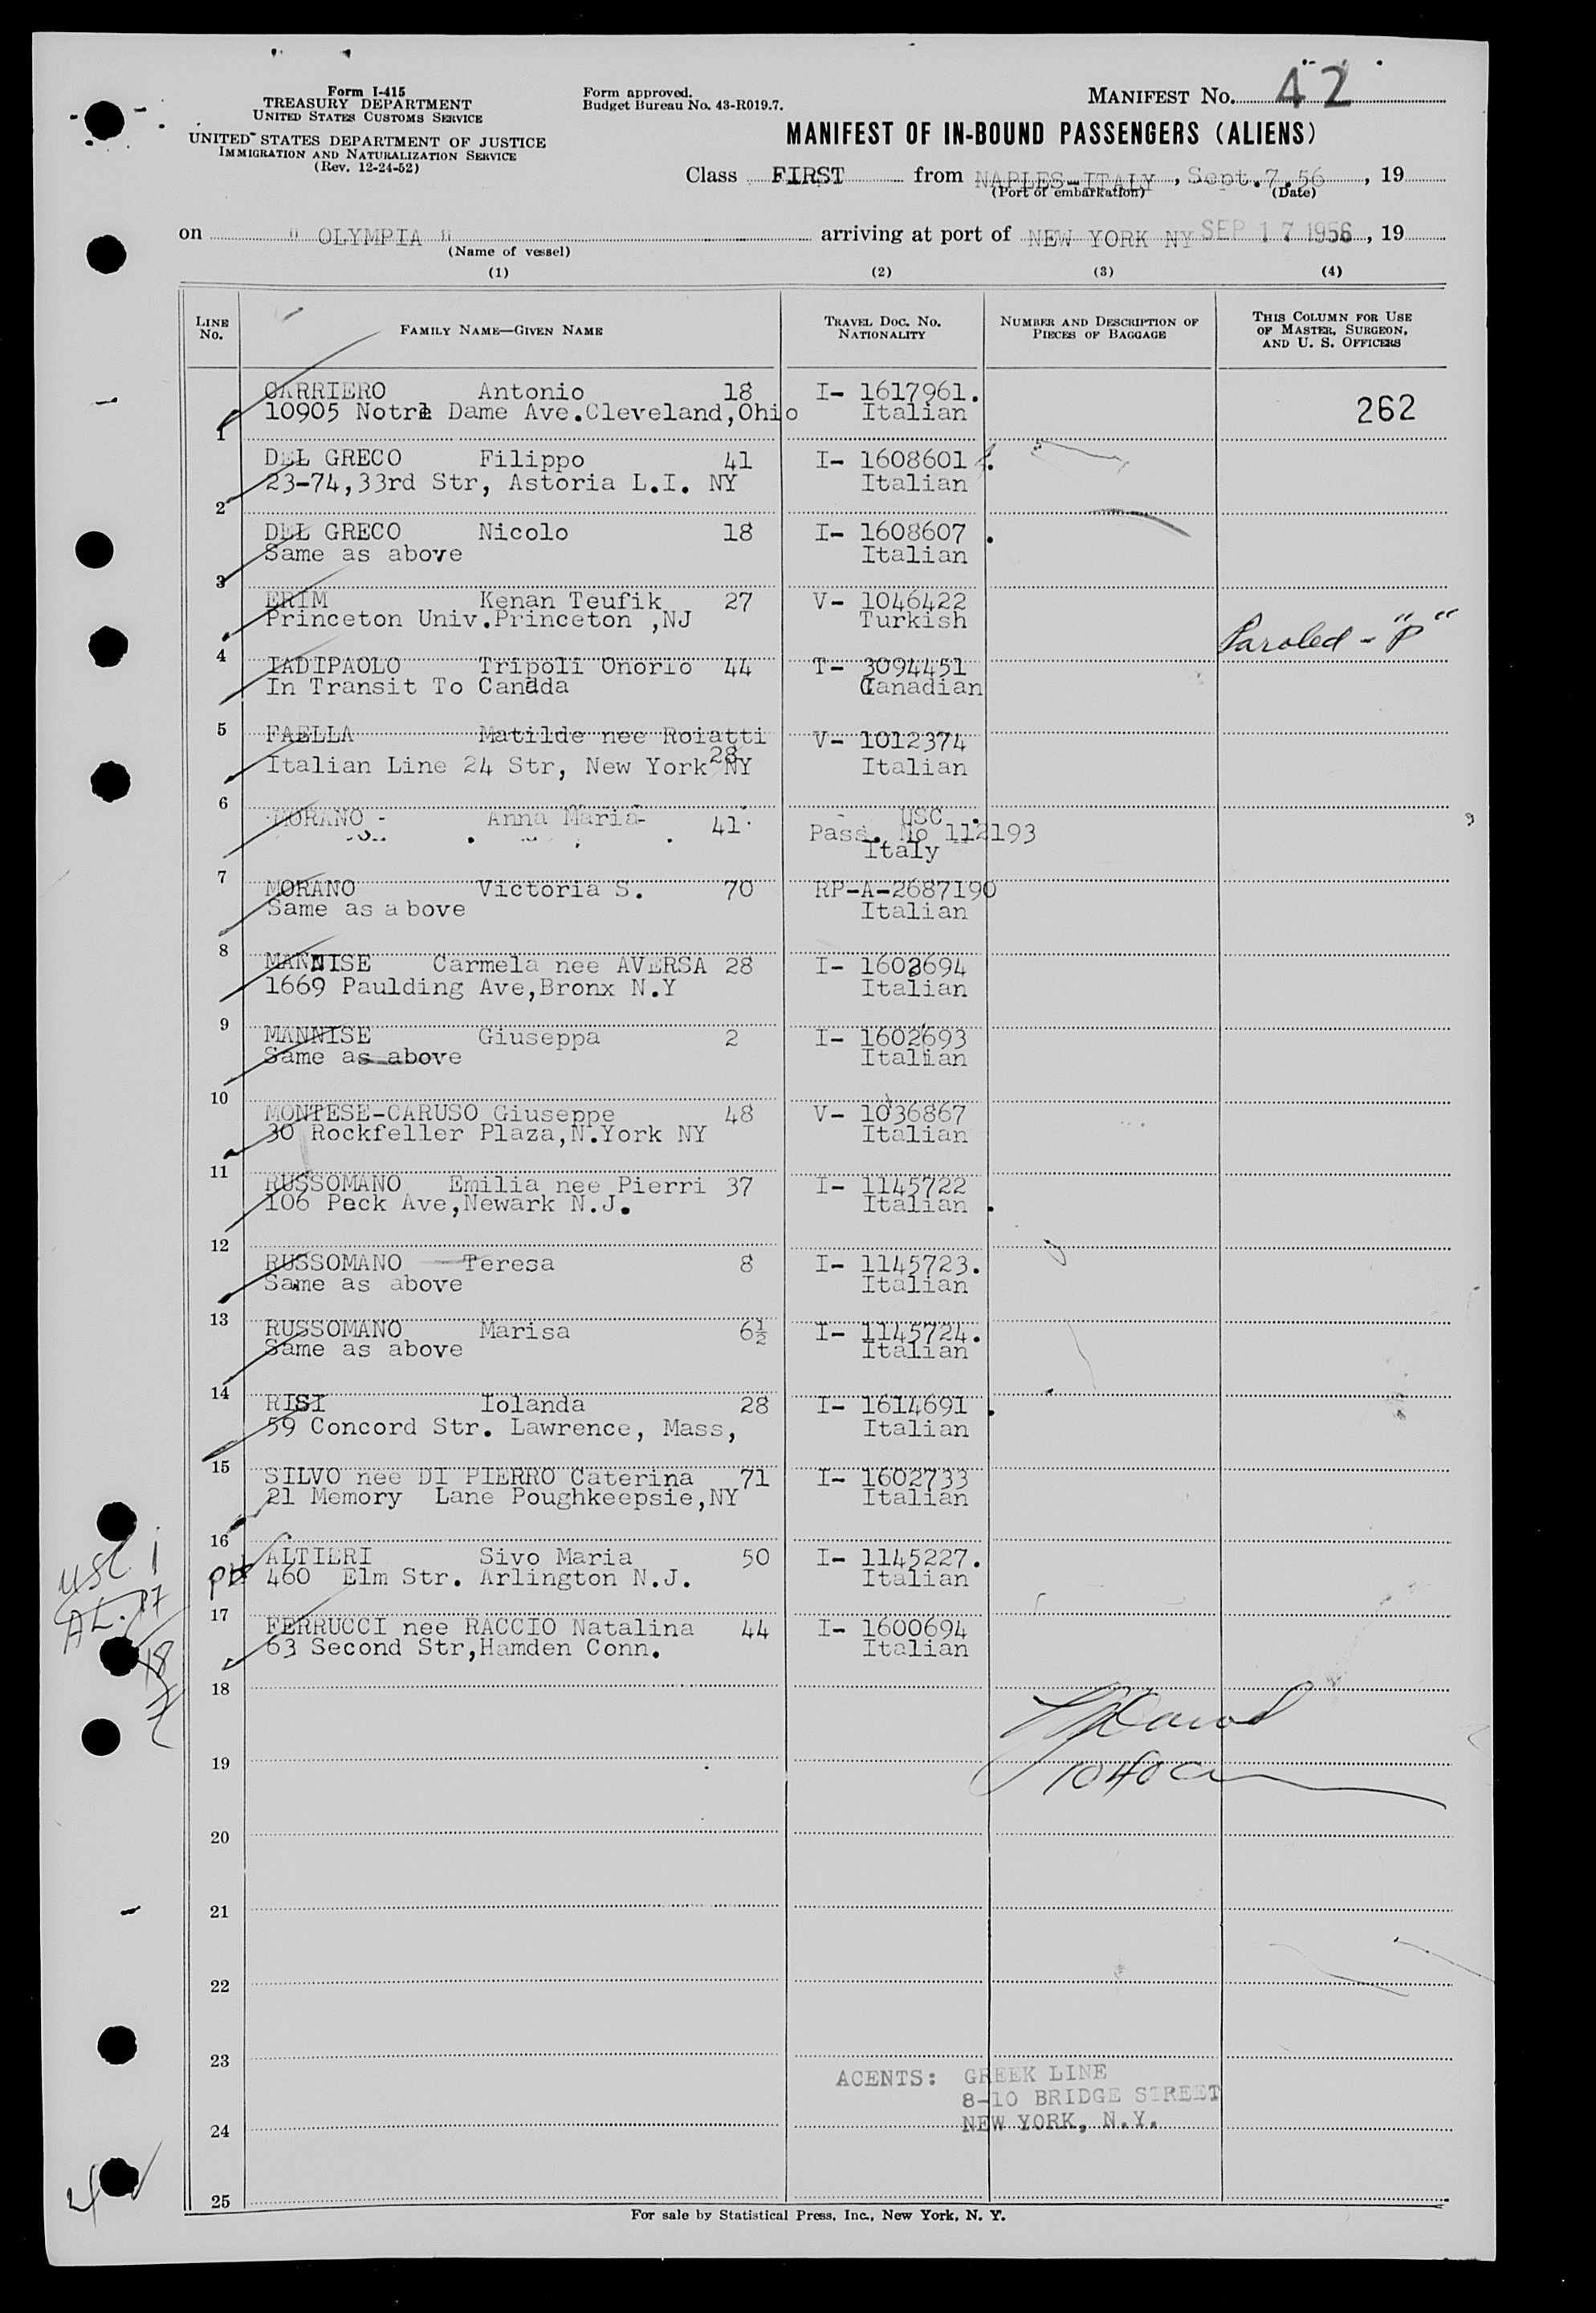 Form I-415
TREASURY DEPARTMENT
UNITED STATES CUSTOMS SERVICE
UNITED STATES DEPARTMENT OF JUSTICE
IMMIGRATION AND NATURALIZATION SERVICE
(Rev. 12-24-52)
Form approved.
Budget Bureau No. 43-R019.7.
MANIFEST NO. 42
MANIFEST OF IN-BOUND PASSENGERS (ALIENS)
Class FIRST from NAPLES-ITALY, Sept.7.56, 19
(Port of embarkation) (Date)
on " OLYMPIA " arriving at port of NEW YORK NY SEP 17 1956, 19
(Name of vessel)
(1) (2) (3) (4)
LINE No. FAMILY NAME—GIVEN NAME TRAVEL DOC. NO. NATIONALITY NUMBER AND DESCRIPTION OF PIECES OF BAGGAGE THIS COLUMN FOR USE OF MASTER, SURGEON, AND U. S. OFFICERS
CARRIERO Antonio 18 I- 1617961.
10905 Notre Dame Ave.Cleveland,Ohio Italian 262
1
DEL GRECO Filippo 41 I- 1608601.
23-74,33rd Str, Astoria L.I. NY Italian
2
DEL GRECO Nicolo 18 I- 1608607.
Same as above Italian
3
ERIM Kenan Teufik 27 V- 1046422
Princeton Univ.Princeton ,NJ Turkish
Paroled - "P"
4
IADIPAOLO Tripoli Onorio 44 T- 3094451
In Transit To Canada Canadian
5
FAELLA Matilde nee Roiatti 28 V- 1012374
Italian Line 24 Str, New York NY Italian
6
MORANO - Anna Maria- 41 USC
Pass. No 112193
Italy
7
MORANO Victoria S. 70 RP-A-2687190
Same as above Italian
8
MANNISE Carmela nee AVERSA 28 I- 1602694
1669 Paulding Ave,Bronx N.Y Italian
9
MANNISE Giuseppa 2 I- 1602693
Same as above Italian
10
MONTESE-CARUSO Giuseppe 48 V- 1036867
30 Rockfeller Plaza,N.York NY Italian
11
RUSSOMANO Emilia nee Pierri 37 I- 1145722
106 Peck Ave,Newark N.J. Italian.
12
RUSSOMANO Teresa 8 I- 1145723.
Same as above Italian
13
RUSSOMANO Marisa 6½ I- 1145724.
Same as above Italian
14
RISI Iolanda 28 I- 1614691.
59 Concord Str. Lawrence, Mass, Italian
15
SILVO nee DI PIERRO Caterina 71 I- 1602733
21 Memory Lane Poughkeepsie,NY Italian
16
ALTIERI Sivo Maria 50 I- 1145227.
460 Elm Str. Arlington N.J. Italian
USC 1
AL. 17
18
17
FERRUCCI nee RACCIO Natalina 44 I- 1600694
63 Second Str,Hamden Conn. Italian
18
19
1040a
20
21
22
23
ACENTS: GREEK LINE
8-10 BRIDGE STREET
NEW YORK, N.Y.
24
25
For sale by Statistical Press, Inc., New York, N. Y.